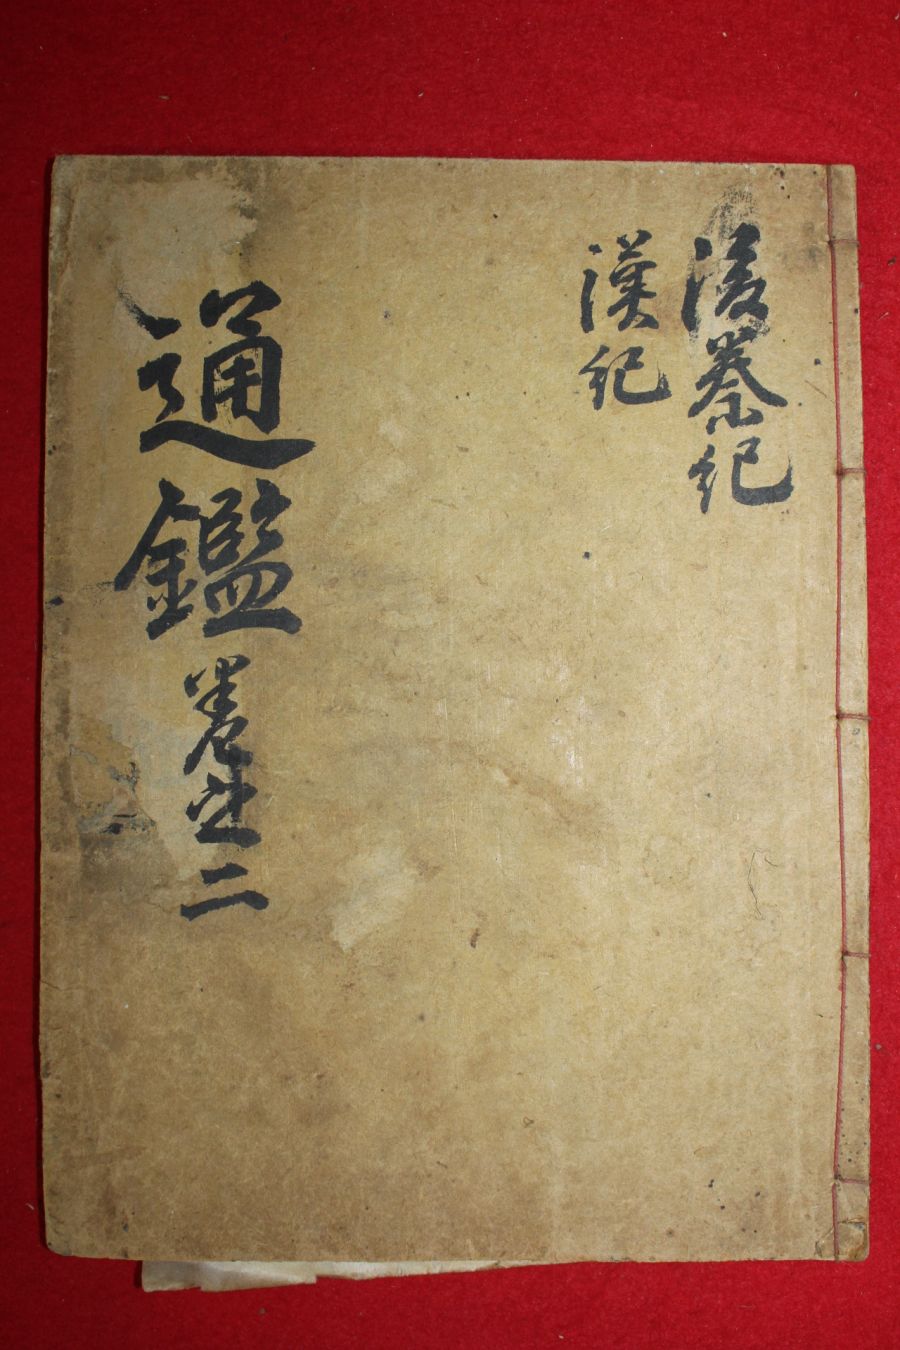 後秦紀
漢紀
通鑑卷之二